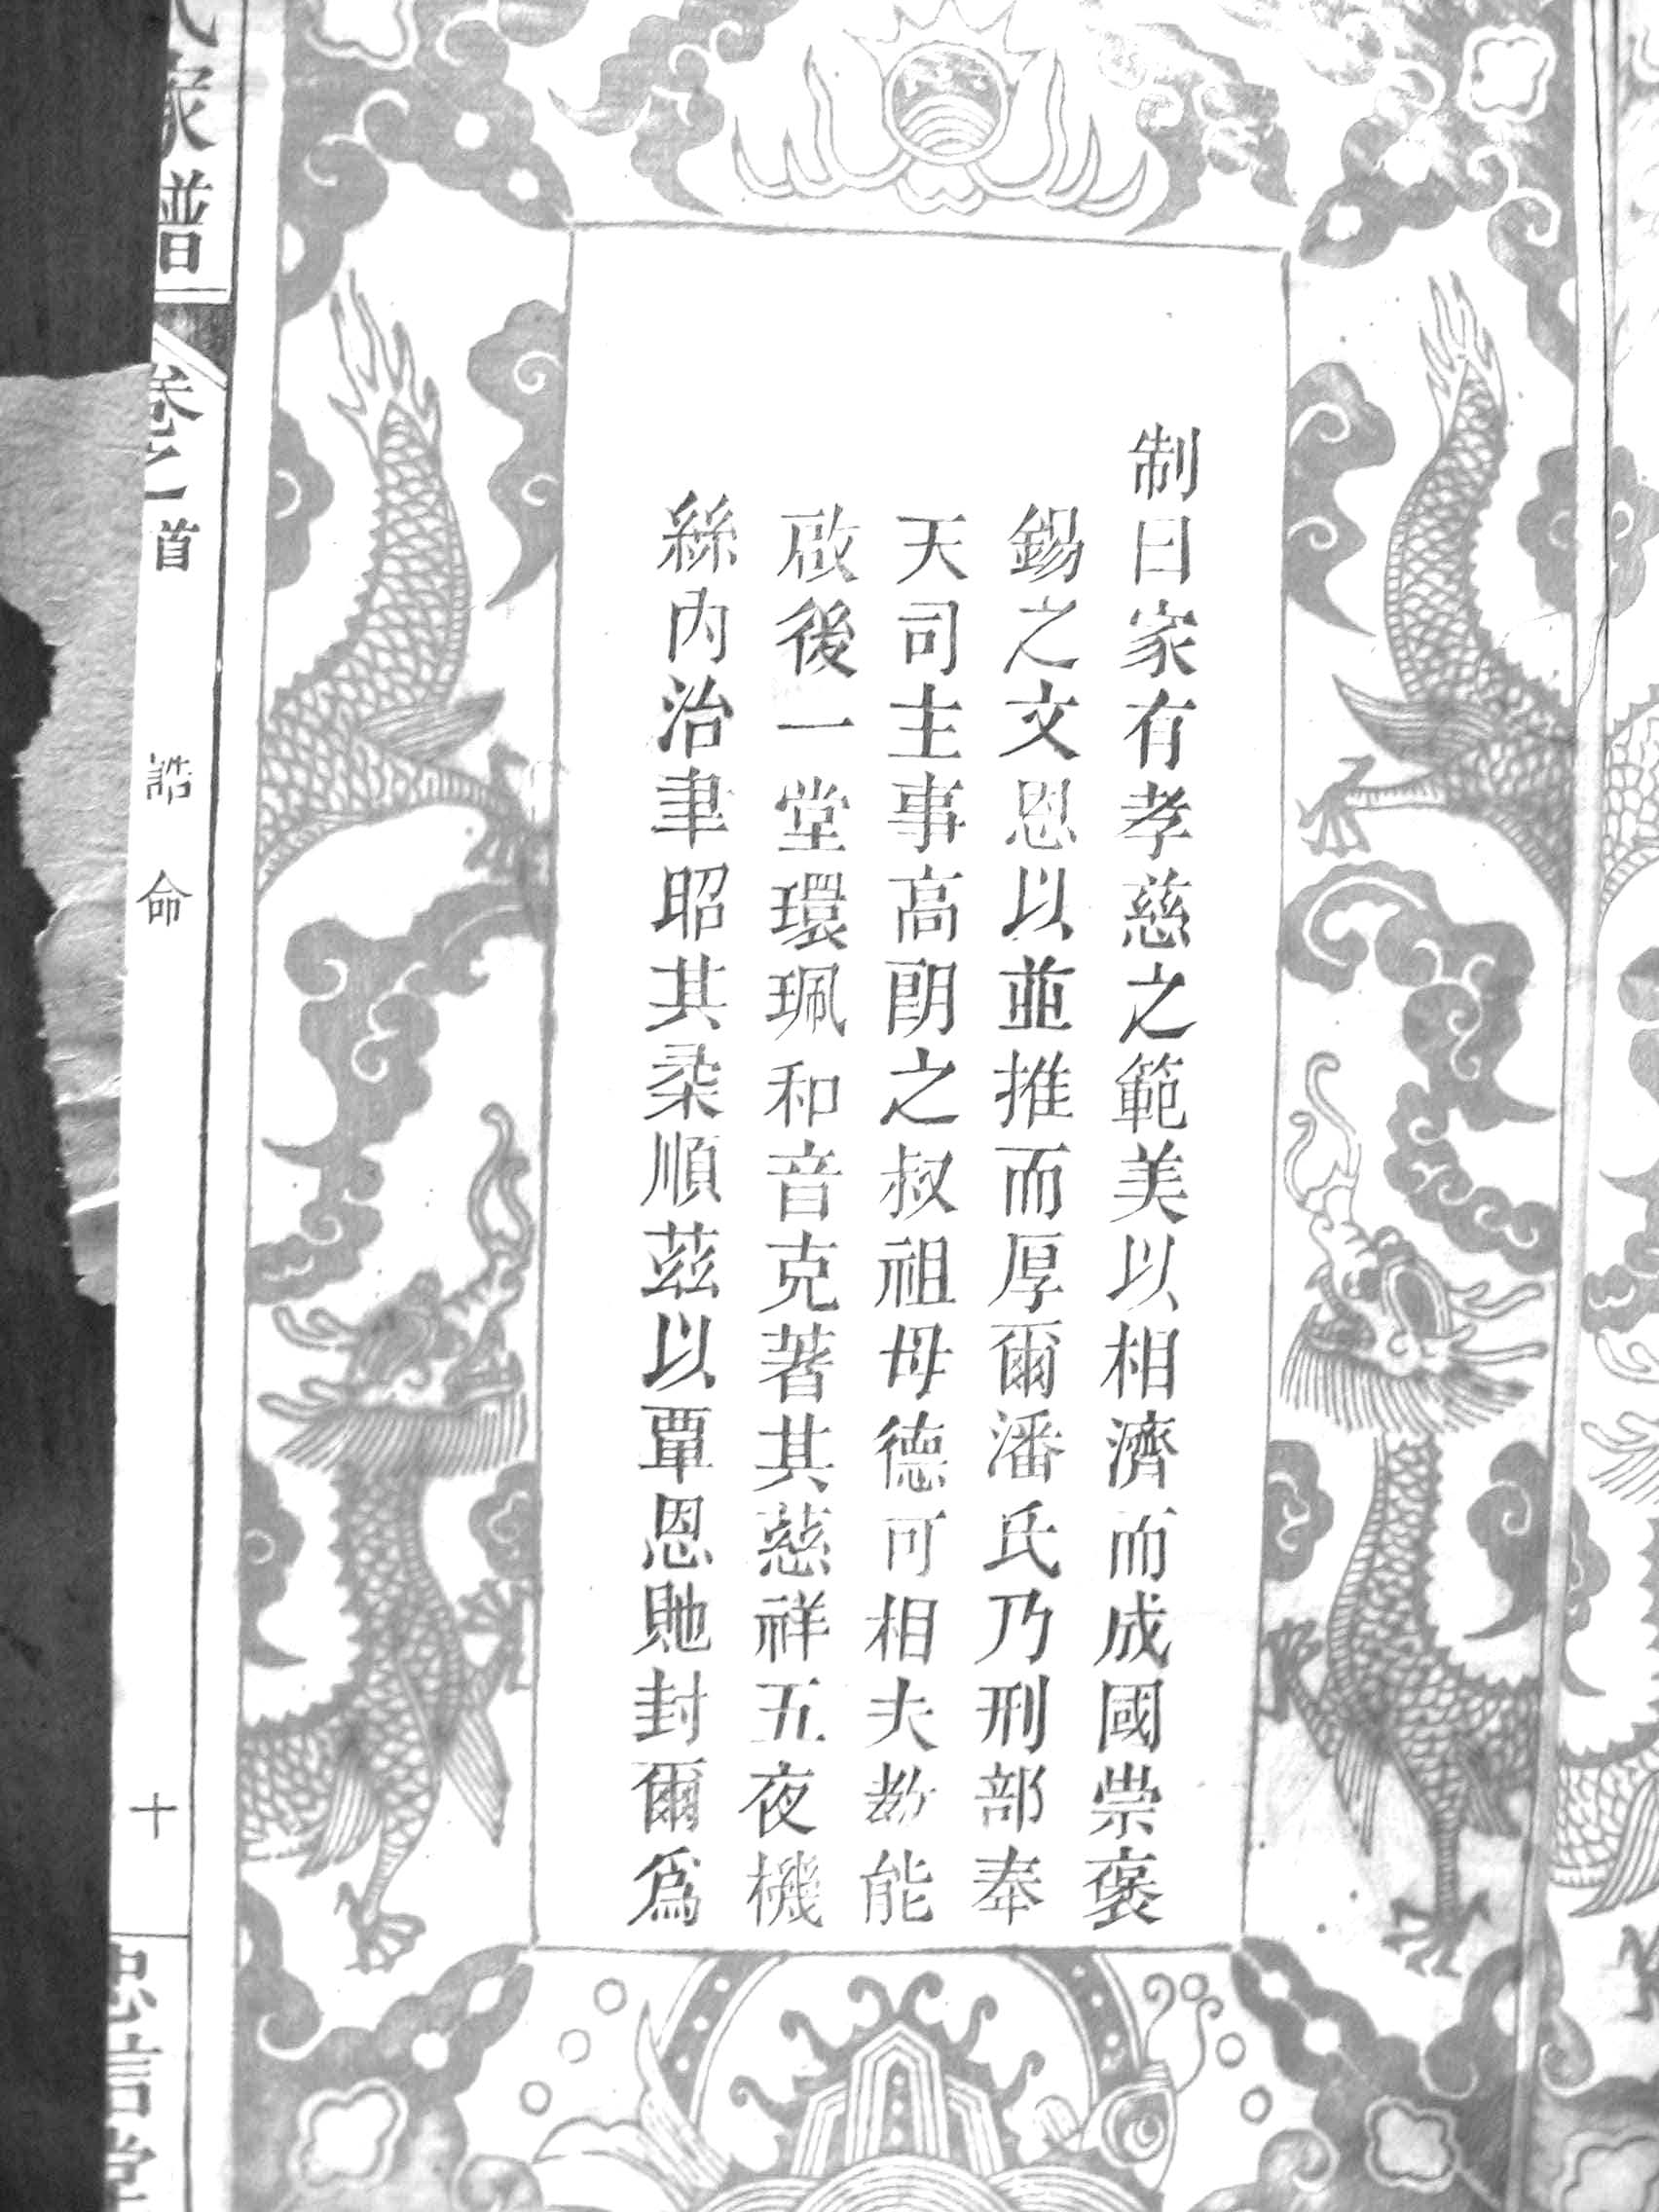 制曰家有孝慈之範美以相濟而成國崇褒
錫之文恩以並推而厚爾潘氏乃刑部奉
天司主事高朗之叔祖母德可相夫教能
啟後一堂環珮和音克著其慈祥五夜機
絲內治聿昭其柔順茲以覃恩貤封爾爲
家譜
卷之首
誥命
十
忠信堂